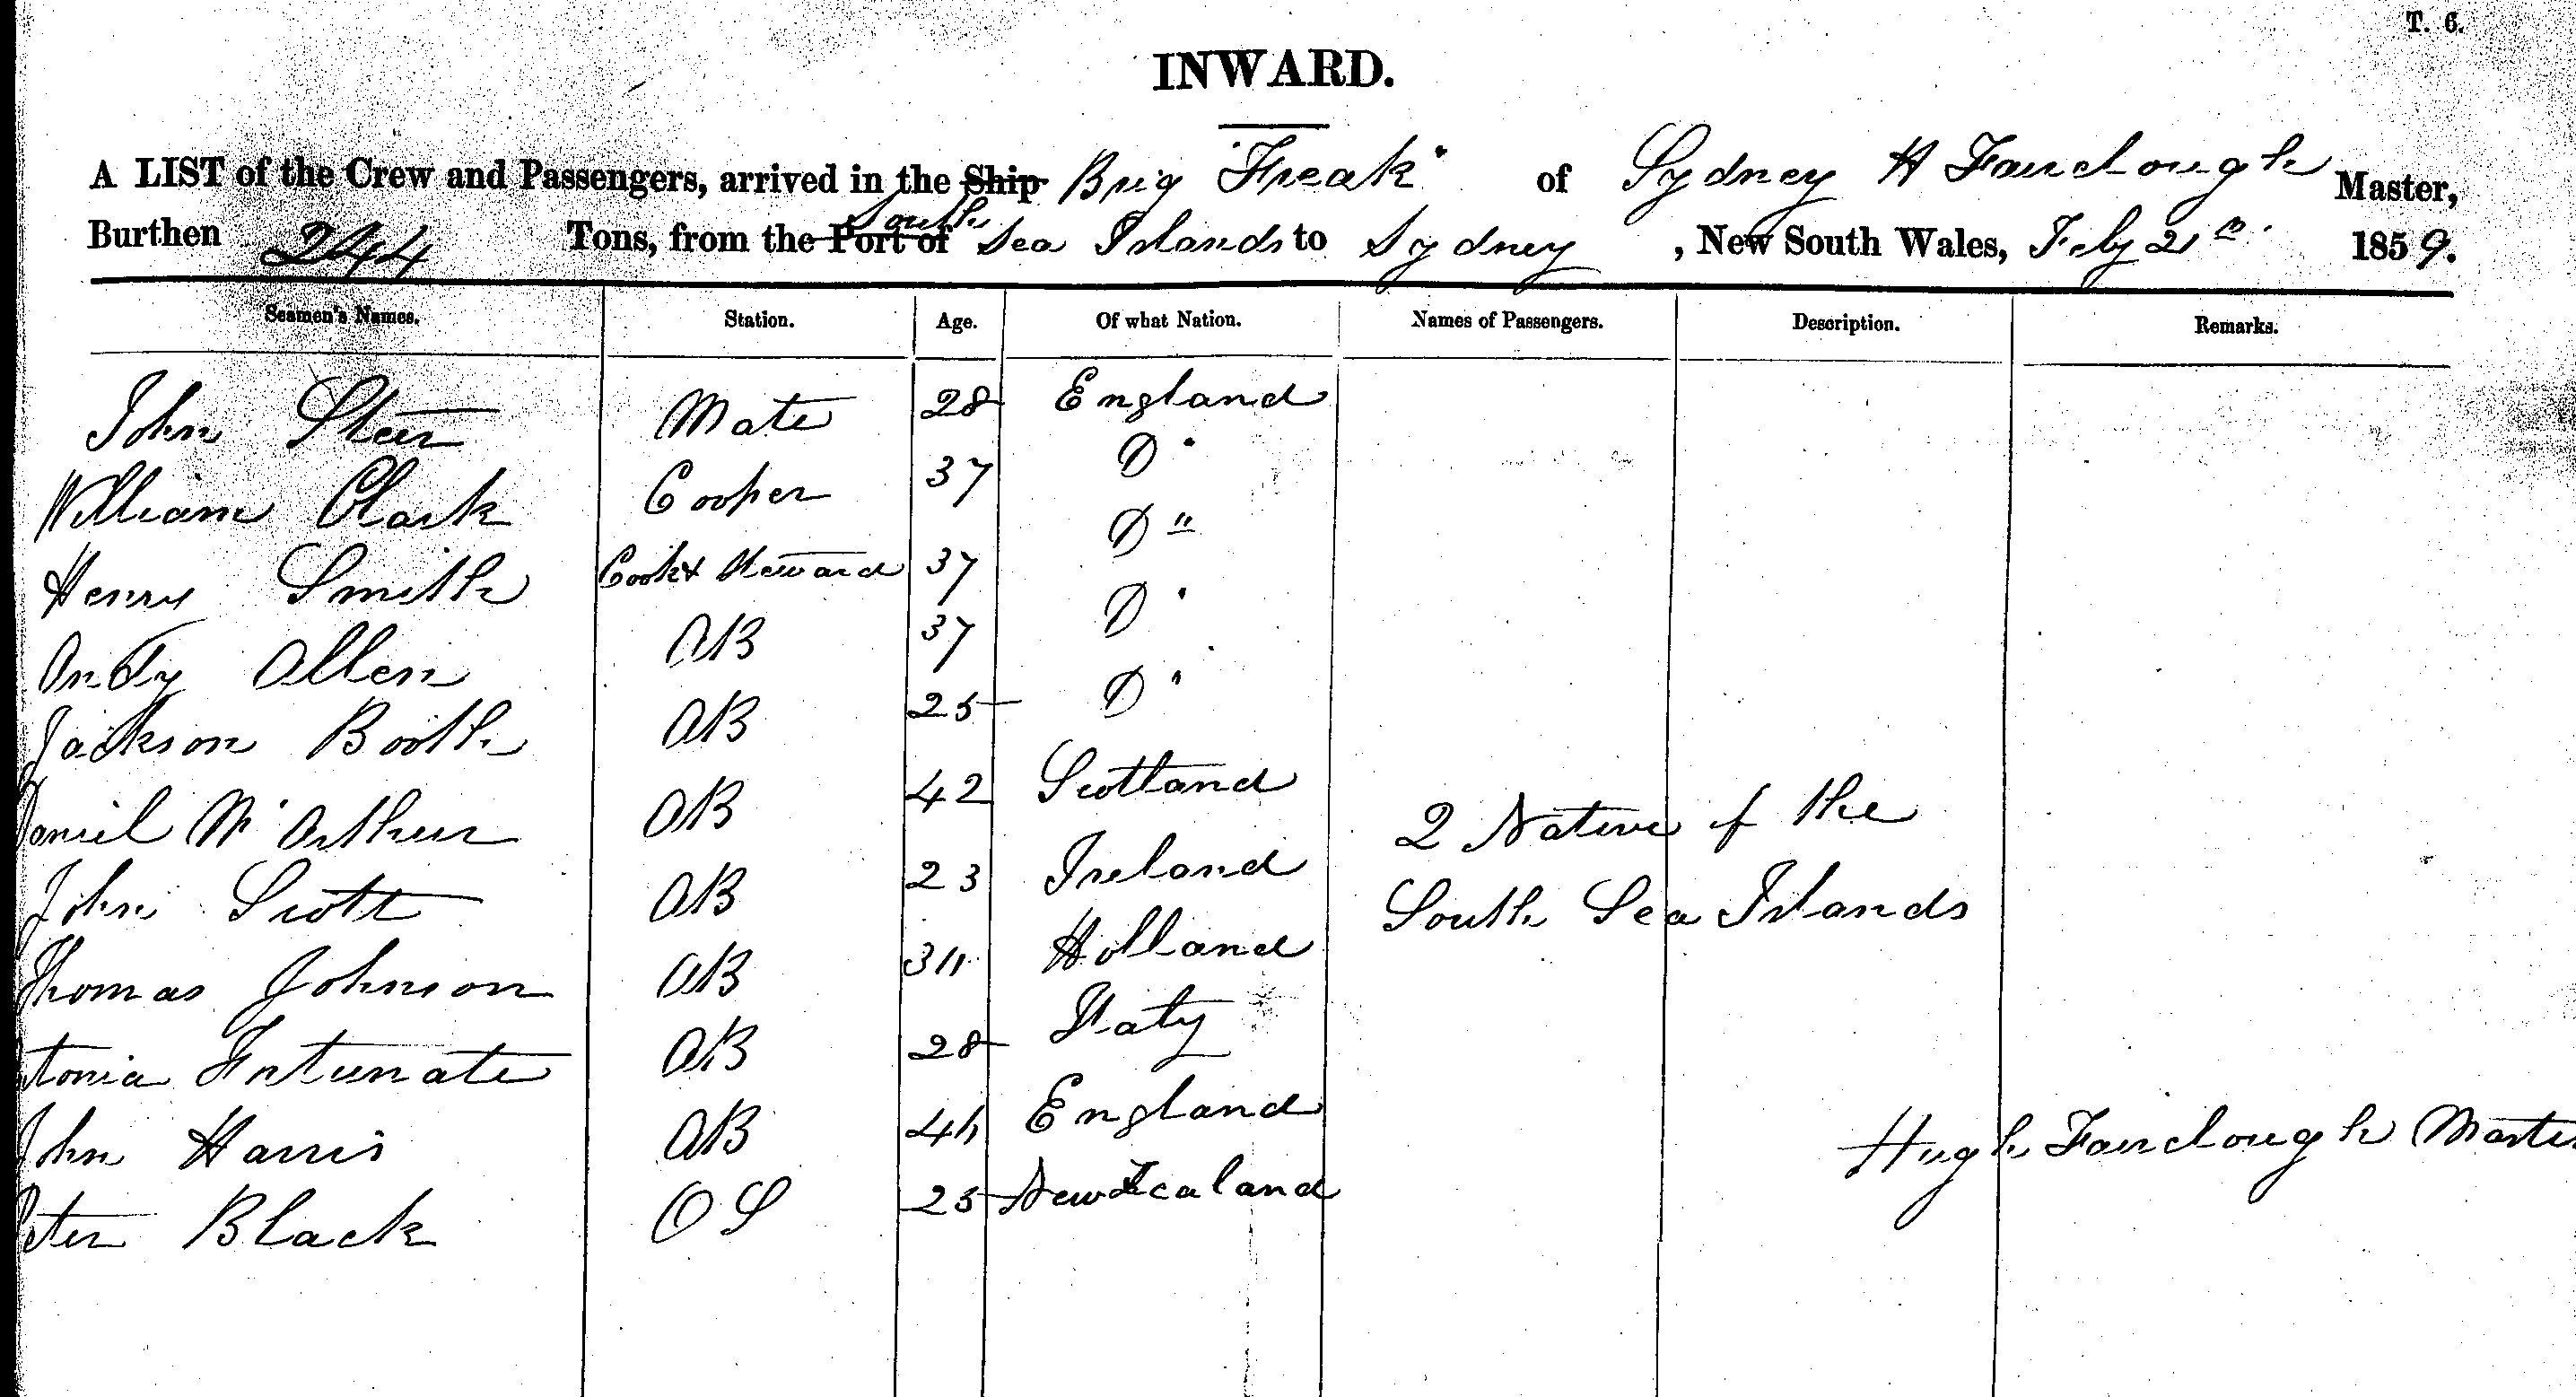 T. 6.
INWARD.
A LIST of the Crew and Passengers, arrived in the Ship Brig "Freak" of Sydney H Fairclough Master,
Burthen 244 Tons, from the Port of South Sea Islands to Sydney, New South Wales, Feby 21st 1859.
Seamen's Names. Station. Age. Of what Nation. Names of Passengers. Description. Remarks.
John Steer Mate 28 England
William Clark Cooper 37 Do
Henry Smith Cook & Steward 37 Do
Andy Allen AB 37 Do
Jackson Booth AB 25 Do
Daniel McArthur AB 42 Scotland
2 Native of the
John Scott AB 23 Ireland
South Sea Islands
Thomas Johnson AB Holland
tonia Fortunate AB 28 Italy
John Harris AB England
Hugh Fairclough Master
Peter Black OS 25 New Zealand